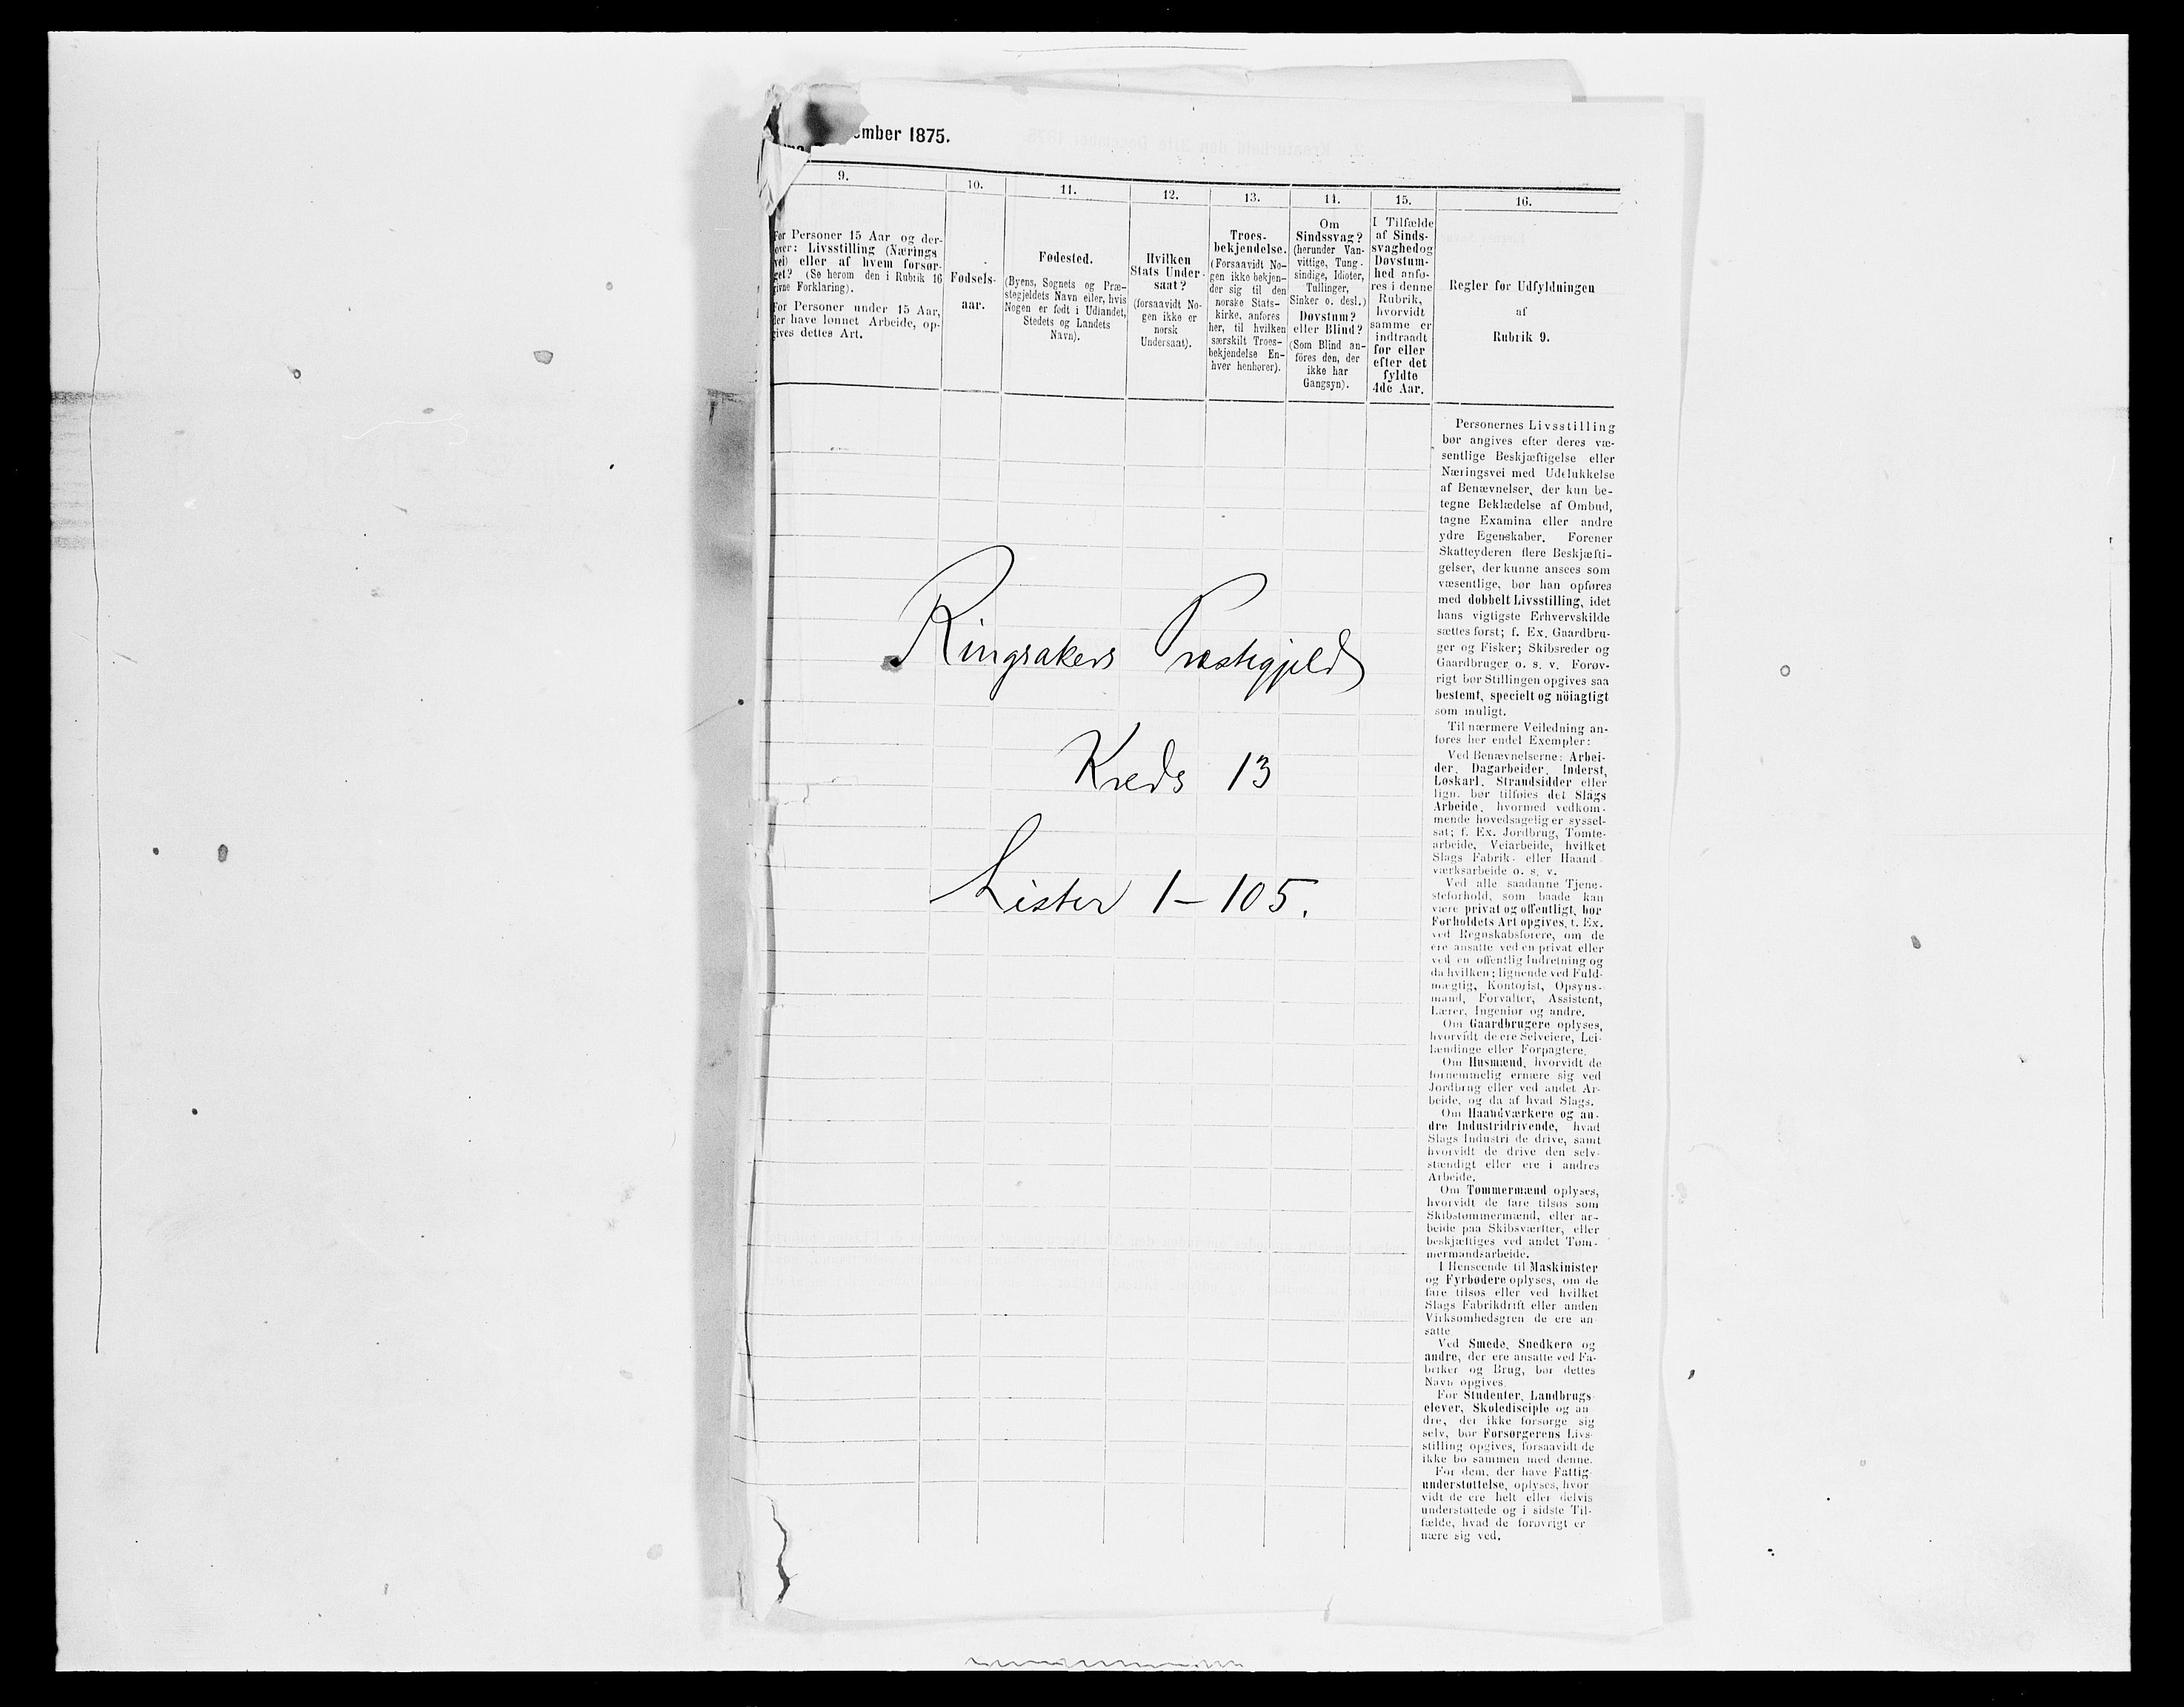 ember 1875.
9.
10.
11.
12.
13.
14.
15.
16.
For Personer 15 Aar og der-
over: Livsstilling (Nærings
vei) eller af hvem forsør-
get? (Se herom den i Rubrik 16
givne Forklaring).
For Personer under 15 Aar,
der have lønnet Arbeide, op-
gives dettes Art.
Fødsels-
aar.
Fødested.
(Byens, Sognets og Præ-
stegjeldets Navn eller, hvis
Nogen er født i Udlandet,
Stedets og Landets
Navn).
Hvilken
Stats Under-
saat?
(forsaavidt No-
gen ikke er
norsk
Undersaat).
Troes-
bekjendelse.
(Forsaavidt No-
gen ikke bekjen-
der sig til den
norske Stats-
kirke, anføres
her, til hvilken
særskilt Troes-
bekjendelse En-
hver henhører).
Om
Sindssvag?
(herunder Van-
vittige, Tung-
sindige, Idioter,
Tullinger,
Sinker o. desl.)
Døvstum?
eller Blind?
(Som Blind an-
føres den, der
ikke har
Gangsyn).
I Tilfælde
af Sinds-
svaghed og
Døvstum-
hed anfø-
res i denne
Rubrik,
hvorvidt
samme er
indtraadt
før eller
efter det
fyldte
4de Aar.
Regler for Udfyldningen
af
Rubrik 9.
Personernes Livsstilling
bør angives efter deres væ-
sentlige Beskjæftigelse eller
Næringsvei med Udelukkelse
af Benævnelser, der kun be-
tegne Beklædelse af Ombud,
tagne Examina eller andre
ydre Egenskaber. Forener
Skatteyderen flere Beskjæfti-
gelser, der kunne ansees som
væsentlige, bør han opføres
med dobbelt Livsstilling, idet
hans vigtigste Erhvervskilde
sættes først; f. Ex. Gaardbru-
ger og Fisker; Skibsreder og
Gaardbruger o. s. v. Forøv-
rigt bør Stillingen opgives saa
bestemt, specielt og nöiagtigt
som muligt.
Til nærmere Veiledning an-
føres her endel Exempler:
Ved Benævnelserne: Arbei-
der, Dagarbeider, Inderst,
Løskarl, Strandsidder eller
lign. bør tilføies det Slags
Arbeide, hvormed vedkom-
mende hovedsagelig er syssel-
sat; f. Ex. Jordbrug, Tomte-
arbeide, Veiarbeide, hvilket
Slags Fabrik- eller Haand-
værksarbeide o. s. v.
Ved alle saadanne Tjene-
steforhold, som baade kan
være privat og offentligt, bør
Forholdets Art opgives, f. Ex.
ved Regnskabsførere, om de
ere ansatte ved en privat eller
ved en offentlig Indretning og
da hvilken; lignende ved Fuld-
mægtig, Kontorist, Opsyns-
mand, Forvalter, Assistent,
Lærer, Ingeniør og andre.
Om Gaardbrugere oplyses,
hvorvidt de ere Selveiere, Lei-
lændinge eller Forpagtere.
Om Husmænd, hvorvidt de
fornemmelig ernære sig ved
Jordbrug eller ved andet Ar-
beide, og da af hvad Slags.
Om Haandværkere og an-
dre Industridrivende, hvad
Slags Industri de drive, samt
hvorvidt de drive den selv-
stændigt eller ere i andres
Arbeide.
Om Tømmermænd oplyses,
hvorvidt de fare tilsøs som
Skibstømmermænd, eller ar-
beide paa Skibsværfter, eller
beskjæftiges ved andet Tøm-
mermandsarbeide.
I Henseende til Maskinister
og Fyrbødere oplyses, om de
fare tilsøs eller ved hvilket
Slags Fabrikdrift eller anden
Virksomhedsgren de ere an
satte
Ved Smede, Snedkere og
andre, der ere ansatte ved Fa-
briker og Brug, bør dettes
Navn opgives.
For Studenter, Landbrugs-
elever, Skoledisciple og an
dre, der ikke forsørge sig
selv, bør Forsørgerens Livs-
stilling opgives, forsaavidt de
ikke bo sammen med denne.
For dem, der have Fattig-
understøttelse, oplyses, hvor
vidt de ere helt eller delvis
understøttede og i sidste Til-
fælde, hvad de forøvrigt er
nære sig ved.
Ringsakers Præstegjeld
Kreds 13
Lister 1-105.